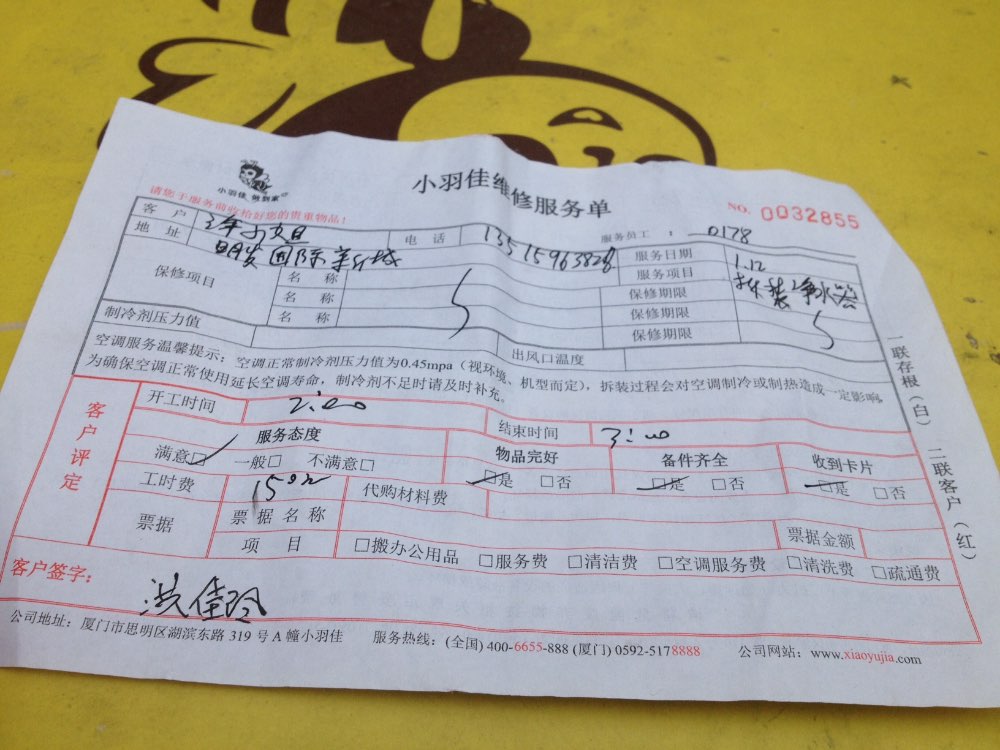 小羽佳 做到家
小羽佳维修服务单
NO. 0032855
请您于服务前收拾好您的贵重物品！
服务员工： 0178
客户
电话 13515963828
服务日期 1.12
地址 国际
服务项目 拆装净水器
保修项目
名称 保修期限
名称 保修期限
名称 保修期限
制冷剂压力值 出风口温度
空调服务温馨提示：空调正常制冷剂压力值为0.45mpa（视环境、机型而定），拆装过程会对空调制冷或制热造成一定影响。
为确保空调正常使用延长空调寿命，制冷剂不足时请及时补充。
客户评定
开工时间 2:00 结束时间 3:00
服务态度 物品完好 备件齐全 收到卡片
满意□ 一般□ 不满意□ □是 □否 □是 □否 □是 □否
工时费 150元 代购材料费
票据 票据名称 票据金额
项目 □搬办公用品 □服务费 □清洁费 □空调服务费 □清洗费 □疏通费
客户签字： 洪佳玲
公司地址：厦门市思明区湖滨东路 319 号 A 幢小羽佳 服务热线：(全国) 400-6655-888 (厦门) 0592-5178888 公司网站：www.xiaoyujia.com
一联存根（白） 二联客户（红）